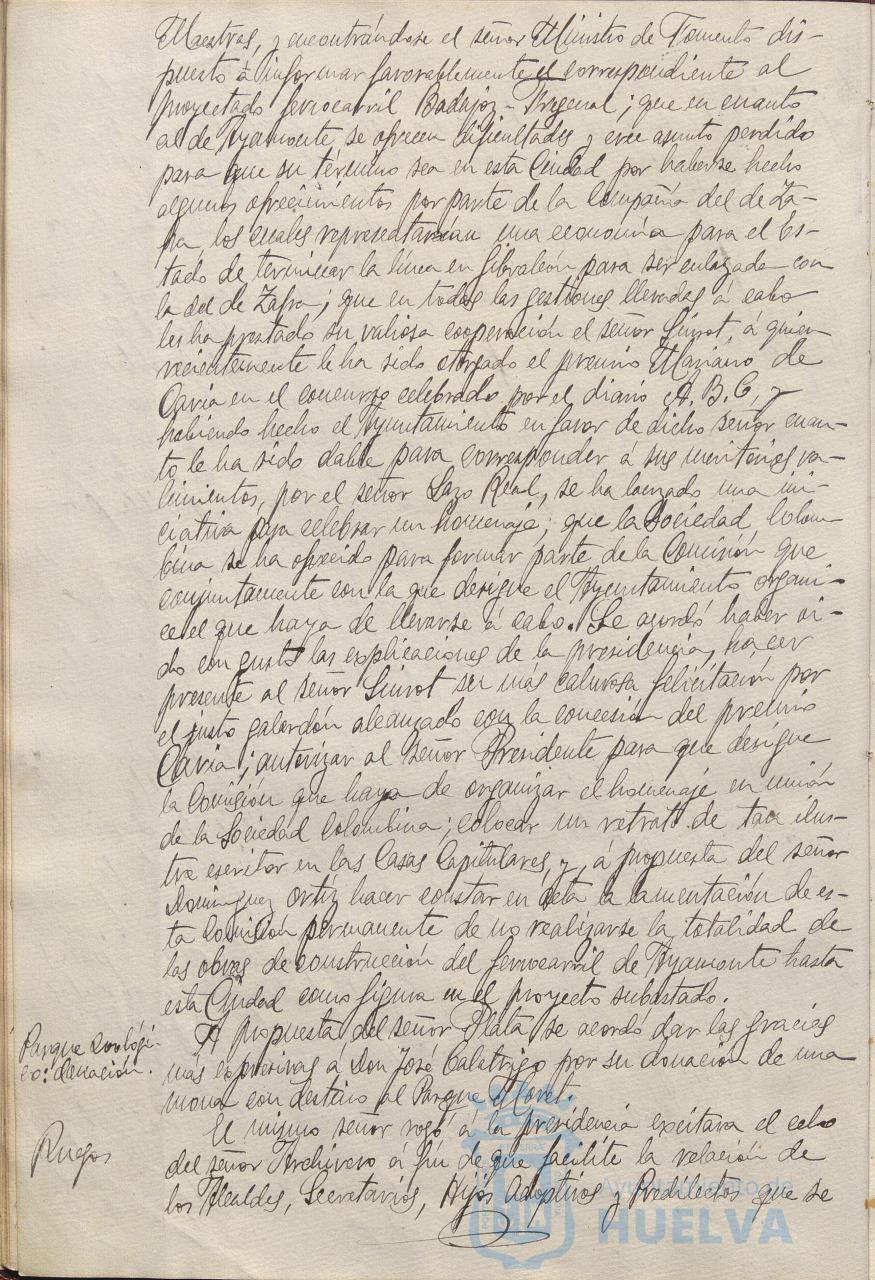 Maestras, y encontrándose el señor Ministro de Fomento dis-
puesto á informar favorablemente el correspondiente al
proyectado ferrocarril Badajoz-Fregenal; que en cuanto
al de Ayamonte se ofrecen dificultades y cree asunto perdido
para que su término sea en esta Ciudad por haberse hecho
algunos ofrecimientos por parte de la Compañía del de Za-
fra, los cuales representarían una economía para el Es-
tado de terminar la línea en Gibraleón para ser enlazada con
la del de Zafra; que en todas las gestiones llevadas á cabo
les ha prestado su valiosa cooperación el señor Siurot, á quien
recientemente le ha sido otorgado el premio Mariano de
Cavia en el concurso celebrado por el diario A.B.C, y
habiendo hecho el Ayuntamiento en favor de dicho señor cuan-
to le ha sido dable para corresponder á sus meritorios va-
limientos, por el señor Lazo Real, se ha lanzado una ini-
ciativa para celebrar un homenaje; que la Sociedad Colom-
bina se ha ofrecido para formar parte de la Comisión que
conjuntamente con la que designe el Ayuntamiento organi-
ce el que haya de llevarse á cabo. Se acordó haber oi-
do con gusto las explicaciones de la presidencia, hacer
presente al señor Siurot su más calurosa felicitación por
el justo galardón alcanzado con la concesión del premio
Cavia; autorizar al Señor Presidente para que designe
la Comisión que haya de organizar el homenaje en unión
de la Sociedad Colombina; colocar un retrato de tan ilus-
tre escritor en las Casas Capitulares, y, á propuesta del señor
Dominguez Ortíz hacer constar en acta la lamentación de es-
ta Comisión permanente de no realizarse la totalidad de
las obras de construcción del ferrocarril de Ayamonte hasta
esta Ciudad como figura en el proyecto subastado.
Parque Zoológi-
co: donación.
A propuesta del señor Plata se acordó dar las gracias
más expresivas á Don José Calatrigo por su donación de una
mona con destino al Parque Moret.
Ruegos
El mismo señor rogó á la presidencia excitara el celo
del señor Archivero á fin de que facilite la relación de
los Alcaldes, Secretarios, Hijos Adoptivos y Predilectos que se
Ayuntamiento de
HUELVA